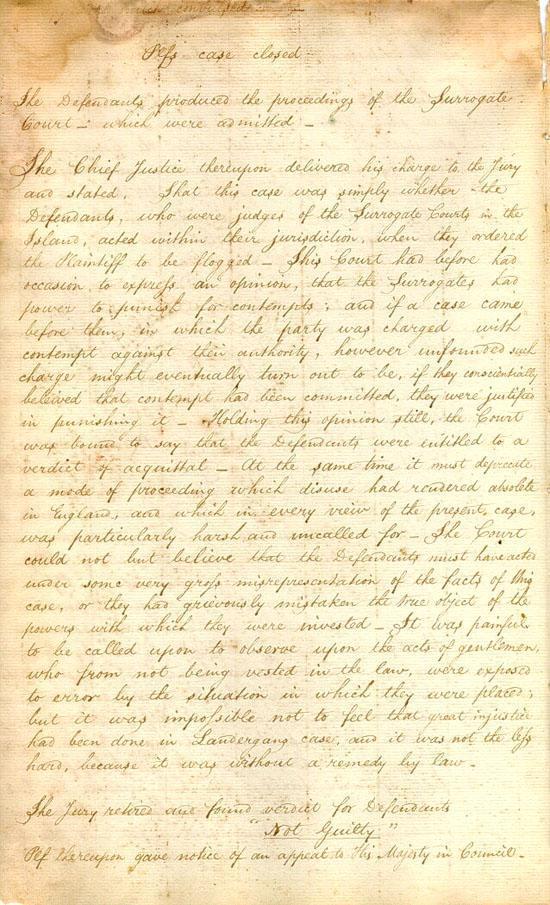 Plfs case closed
The Defendants produced the proceedings of the Surrogate
Court – which were admitted –
The Chief Justice thereupon delivered his charge to the Jury
and stated, That this case was simply whether the
Defendants, who were judges of the Surrogate Courts in the
Island, acted within their jurisdiction, when they ordered
the Plaintiff to be flogged – This Court had before had
occasion to express an opinion, that the Surrogates had
power to punish for contempts; and if a case came
before them, in which the party was charged with
contempt against their authority, however unfounded such
charge might eventually turn out to be, if they conscientially
beleived that contempt had been committed, they were justified
in punishing it – Holding this opinion still, the Court
was bound to say that the Defendants were entitled to a
verdict of acquittal – At the same time it must deprecate
a mode of proceeding which disuse had rendered absolete
in England, and which in every view of the present case,
was particularly harsh and uncalled for – The Court
could not but believe that the Defendants must have acted
under some very gross misrepresentation of the facts of this
case, or they had grievously mistaken the true object of the
powers with which they were invested – It was painful
to be called upon to observe upon the acts of gentlemen,
who from not being vested in the law, were exposed
to error by the situation in which they were placed;
but it was impossible not to feel that great injustice
had been done in Landergang case, and it was not the less
hard, because it was without a remedy by law –
The Jury retired and found verdict for Defendants
"Not Guilty"
Plf thereupon gave notice of an appeal to His Majesty in Council –